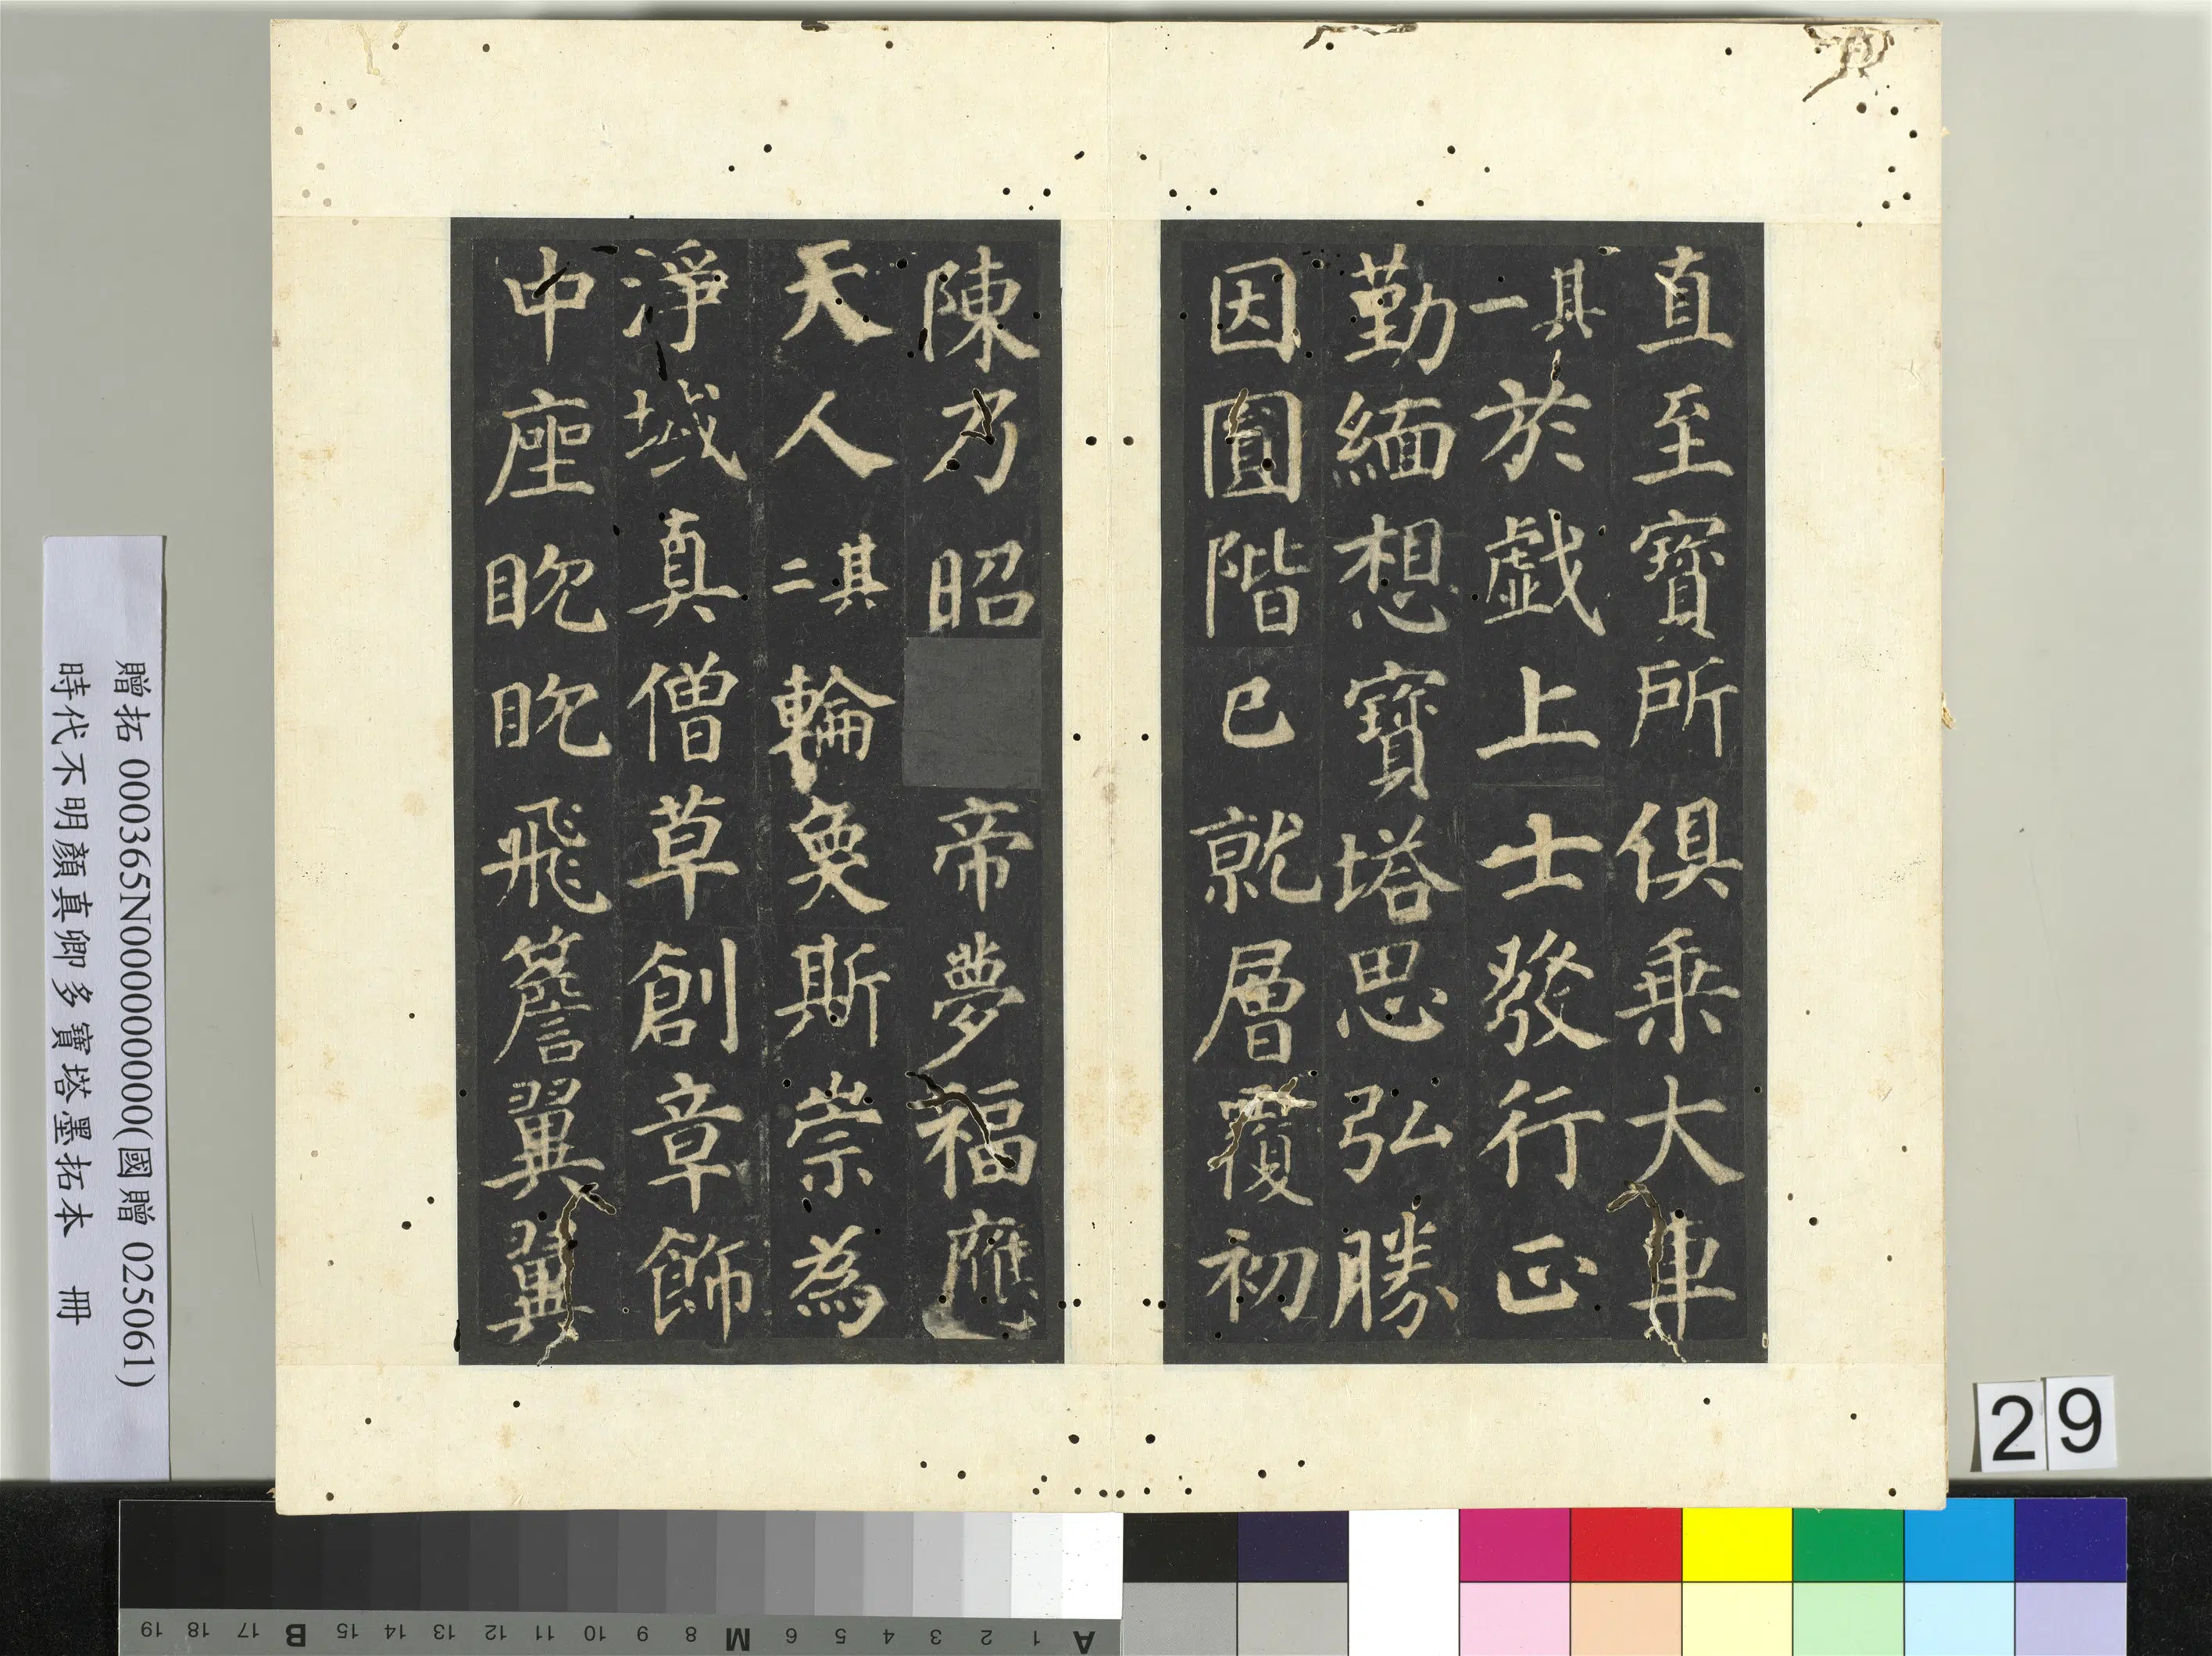 直至寶所俱乗大車
其一於戯上士發行正
勤緬想寶塔思弘勝
因圓階已就層覆初
陳乃昭帝夢福應
天人其二輪奐斯崇為
淨域真僧草創章飾
中座眈眈飛簷翼翼
贈拓 000365N000000000(國贈 025061)
時代不明顏真卿多寶塔墨拓本 冊
29
A 1 2 3 4 5 6 M 8 9 10 11 12 13 14 15 B 17 18 19